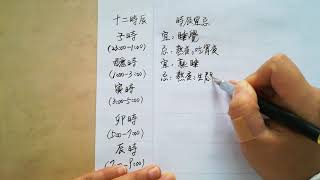 十二時辰
子時
(23:00-1:00)
醜時
(1:00-3:00)
寅時
(3:00-5:00)
卯時
(5:00-7:00)
辰時
(7:00-9:00)
时辰宜忌
宜:睡覺
忌:熬夜,吃宵夜
宜:熟睡
忌:熬夜,生